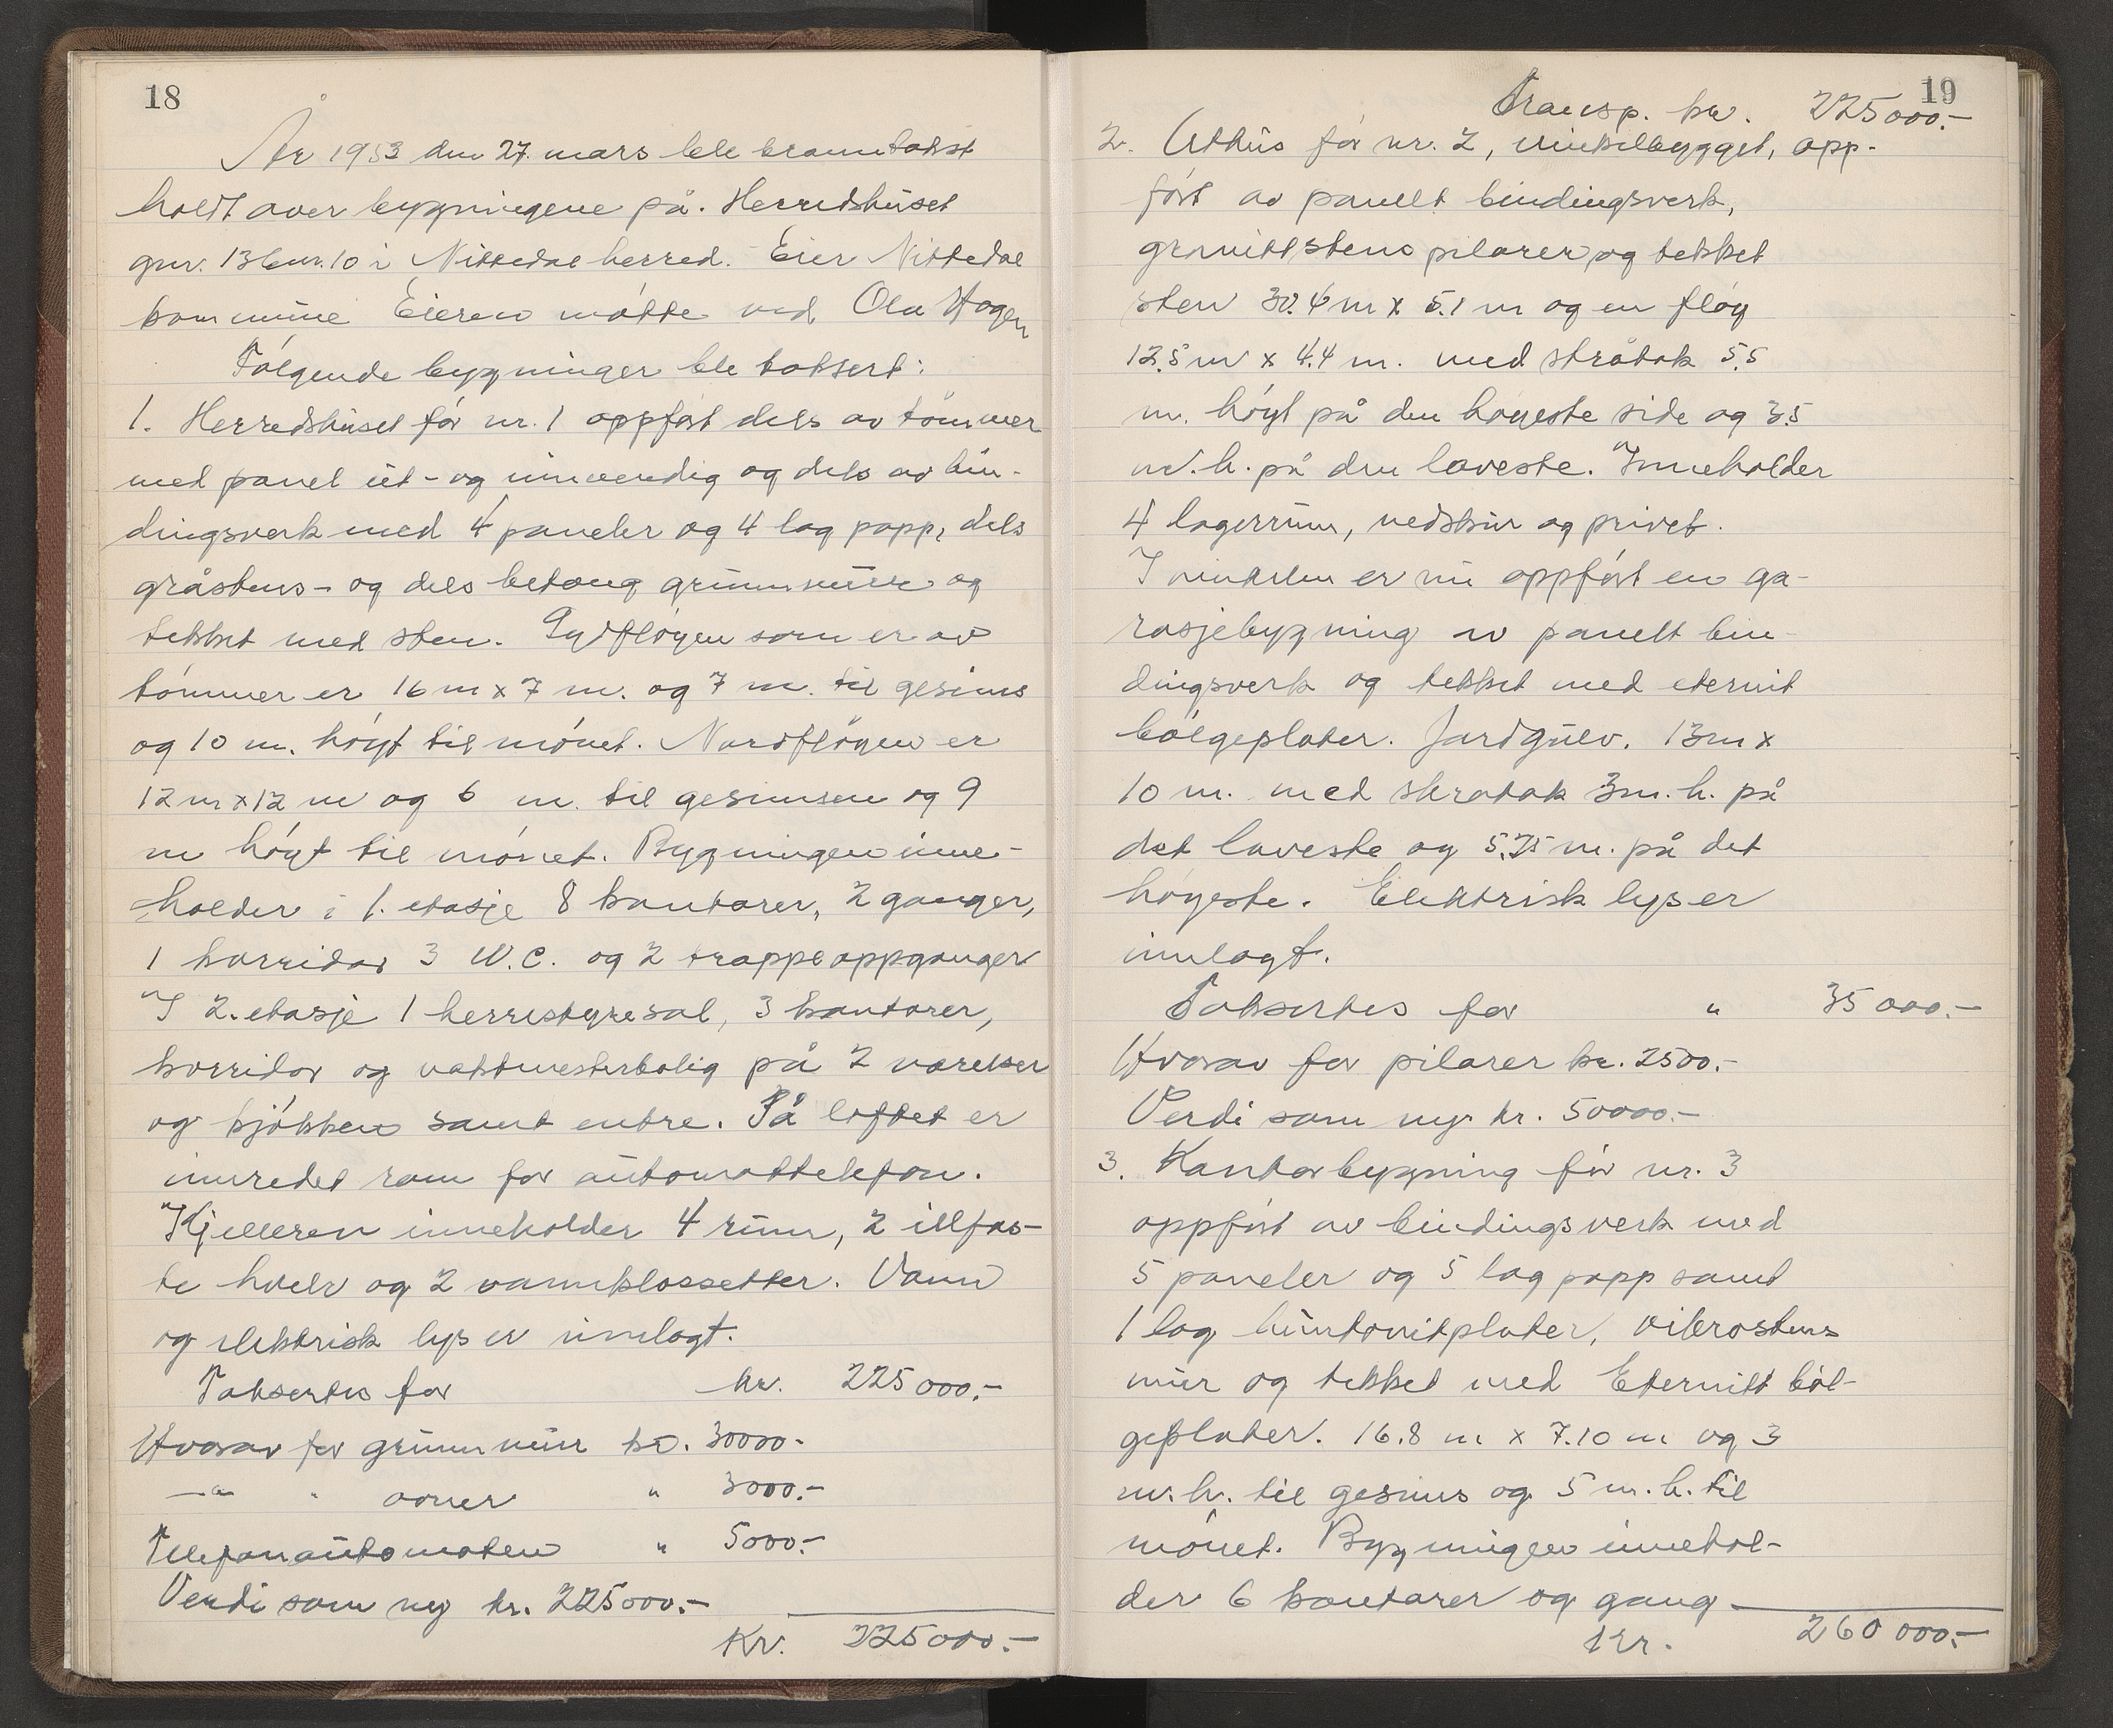 18
År 1953 den 27. mars ble branntakst
holdt over bygningene på. Herredshuset
gnr. 13 bnr. 10 i Nittedal herred. Eier Nittedal
kommune Eieren møtte ved Ola Hagen
Følgende bygninger ble taksert:
1. Herredshuset før nr. 1 oppført dels av tømmer
med panel ut- og innvendig og dels av bin-
dingsverk med 4 paneler og 4 lag papp, dels
gråstens- og dels betong grunnmur og
tekket med sten. Sydfløyen som er av
tømmer er 16 m x 7 m. og 7 m. til gesims
og 10 m. høyt til mønet. Nordfløyen er
12 m x 12 m og 6 m. til gesimsen og 9
m høyt til mønet. Bygningen inne-
holder i 1. etasje 8 kontorer, 2 ganger,
1 korridor 3 W.C. og 2 trappeoppganger
I 2. etasje 1 herrestyresal, 3 kontorer,
korridor og vaktmesterbolig på 2 værelser
og kjøkken samt entre. På loftet er
innredet rom for automattelefon.
Kjelleren inneholder 4 rum, 2 illfas-
te hvelv og 2 vannklossetter. Vann
og elektrisk lys er innlagt.
Takseres for kr. 225 000.-
Hvorav for grunnmur kr. 30000.-
-"- " ovner " 3000.-
Telefonautomaten " 5000.-
Verdi som ny kr. 225000.-
Kr. 225000.-
19
Transp. kr. 225000.-
2. Uthus før nr. 2, vinkelbygget, opp-
ført av panelt bindingsverk,
granittstens pilarer og tekket
sten 30.4 m x 5.1 m og en fløy
12.5 m x 4.4 m. med skråtak 5.5
m. høyt på den høyeste side og 3.5
m. h. på den laveste. Inneholder
4 lagerrum, vedskur og privet.
I vinkelen er nu oppført en ga-
rasjebygning av panelt bin-
dingsverk og tekket med eternit
bølgeplater. Jordgulv. 13m x
10 m. med skratak 3m. h. på
det laveste og 5.75 m. på det
høyeste. Elektrisk lys er
innlagt.
Takseres for " 35 000.-
Hvorav for pilarer kr. 2500.-
Verdi som ny kr. 50000.-
3. Kontorbygning før nr. 3
oppført av bindingsverk med
5 paneler og 5 lag papp samt
1 lag huntonitplater, vibrostens
mur og tekket med Eternitt bøl-
geplater. 16.8 m x 7.10 m og 3
m. h. til gesims og 5 m. h. til
mønet. Bygningen innehol-
der 6 kontorer og gang
Kr. 260 000.-